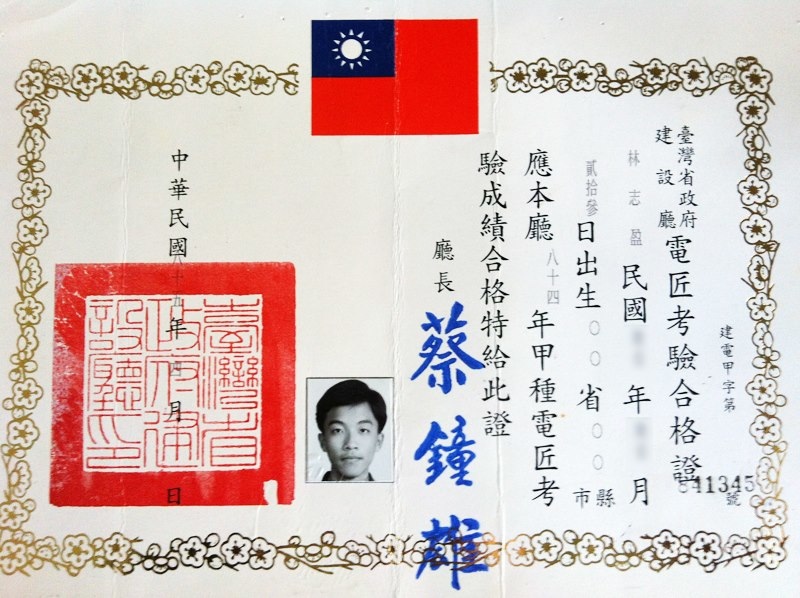 建電甲字第841345號
臺灣省政府建設廳電匠考驗合格證
林志盈 民國 年 月
貳拾參日出生○○省○○縣市
應本廳八十四年甲種電匠考
驗成績合格特給此證
廳長 蔡鐘雄
中華民國八十五年四月 日
臺灣省政府建設廳印